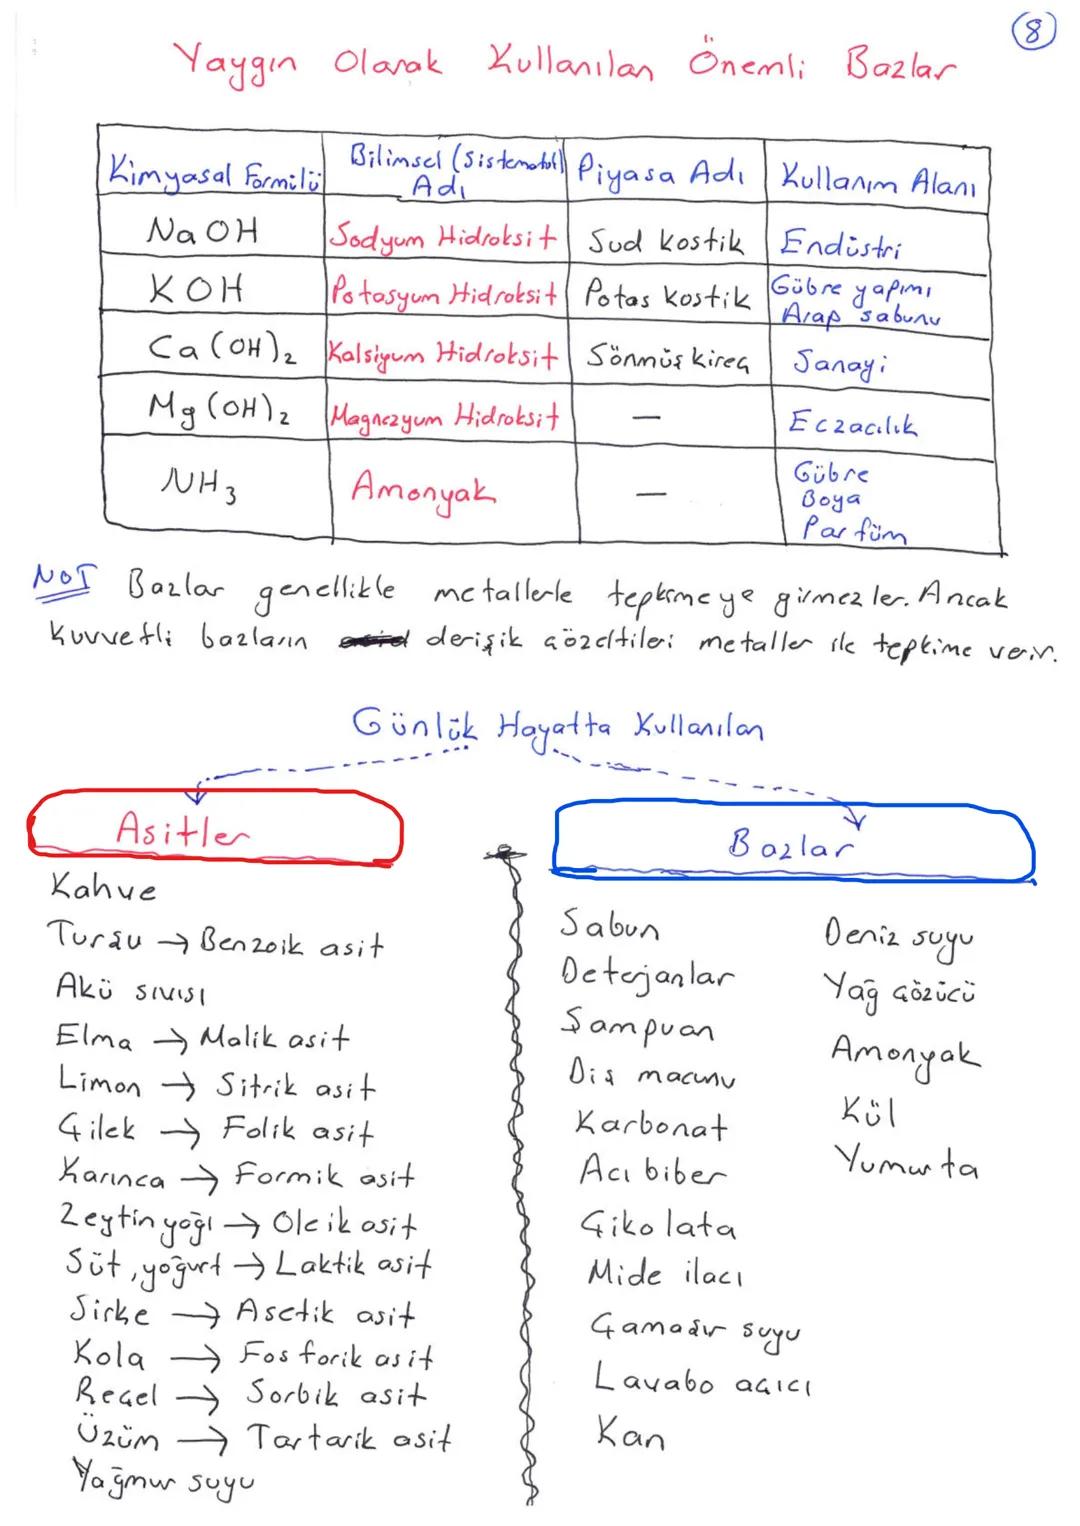 8
Yaygın Olarak Kullanılan Önemli Bazlar
Kimyasal Formülü Bilimsel (Sistematik) Adı Piyasa Adı Kullanım Alanı
NaOH Sodyum Hidroksit Sud kostik Endüstri
KOH Potasyum Hidroksit Potas kostik Gübre yapımı Arap sabunu
Ca(OH)₂ Kalsiyum Hidroksit Sönmüş kireç Sanayi
Mg(OH)₂ Magnezyum Hidroksit — Eczacılık
NH₃ Amonyak — Gübre Boya Parfüm
NOT Bazlar genellikle metallerle tepkimeye girmezler. Ancak
kuvvetli bazların derişik çözeltileri metaller ile tepkime verir.
Günlük Hayatta Kullanılan
Asitler
Kahve
Turşu → Benzoik asit
Akü sıvısı
Elma → Malik asit
Limon → Sitrik asit
Çilek → Folik asit
Karınca → Formik asit
Zeytin yağı → Oleik asit
Süt, yoğurt → Laktik asit
Sirke → Asetik asit
Kola → Fosforik asit
Reçel → Sorbik asit
Üzüm → Tartarik asit
Yağmur suyu
Bazlar
Sabun
Deterjanlar
Şampuan
Diş macunu
Karbonat
Acı biber
Çikolata
Mide ilacı
Çamaşır suyu
Lavabo açıcı
Kan
Deniz suyu
Yağ çözücü
Amonyak
Kül
Yumurta